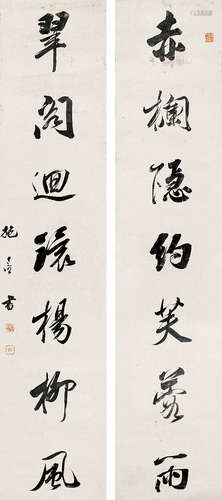 赤欄隱約芙蓉雨
翠閣迴環楊柳風